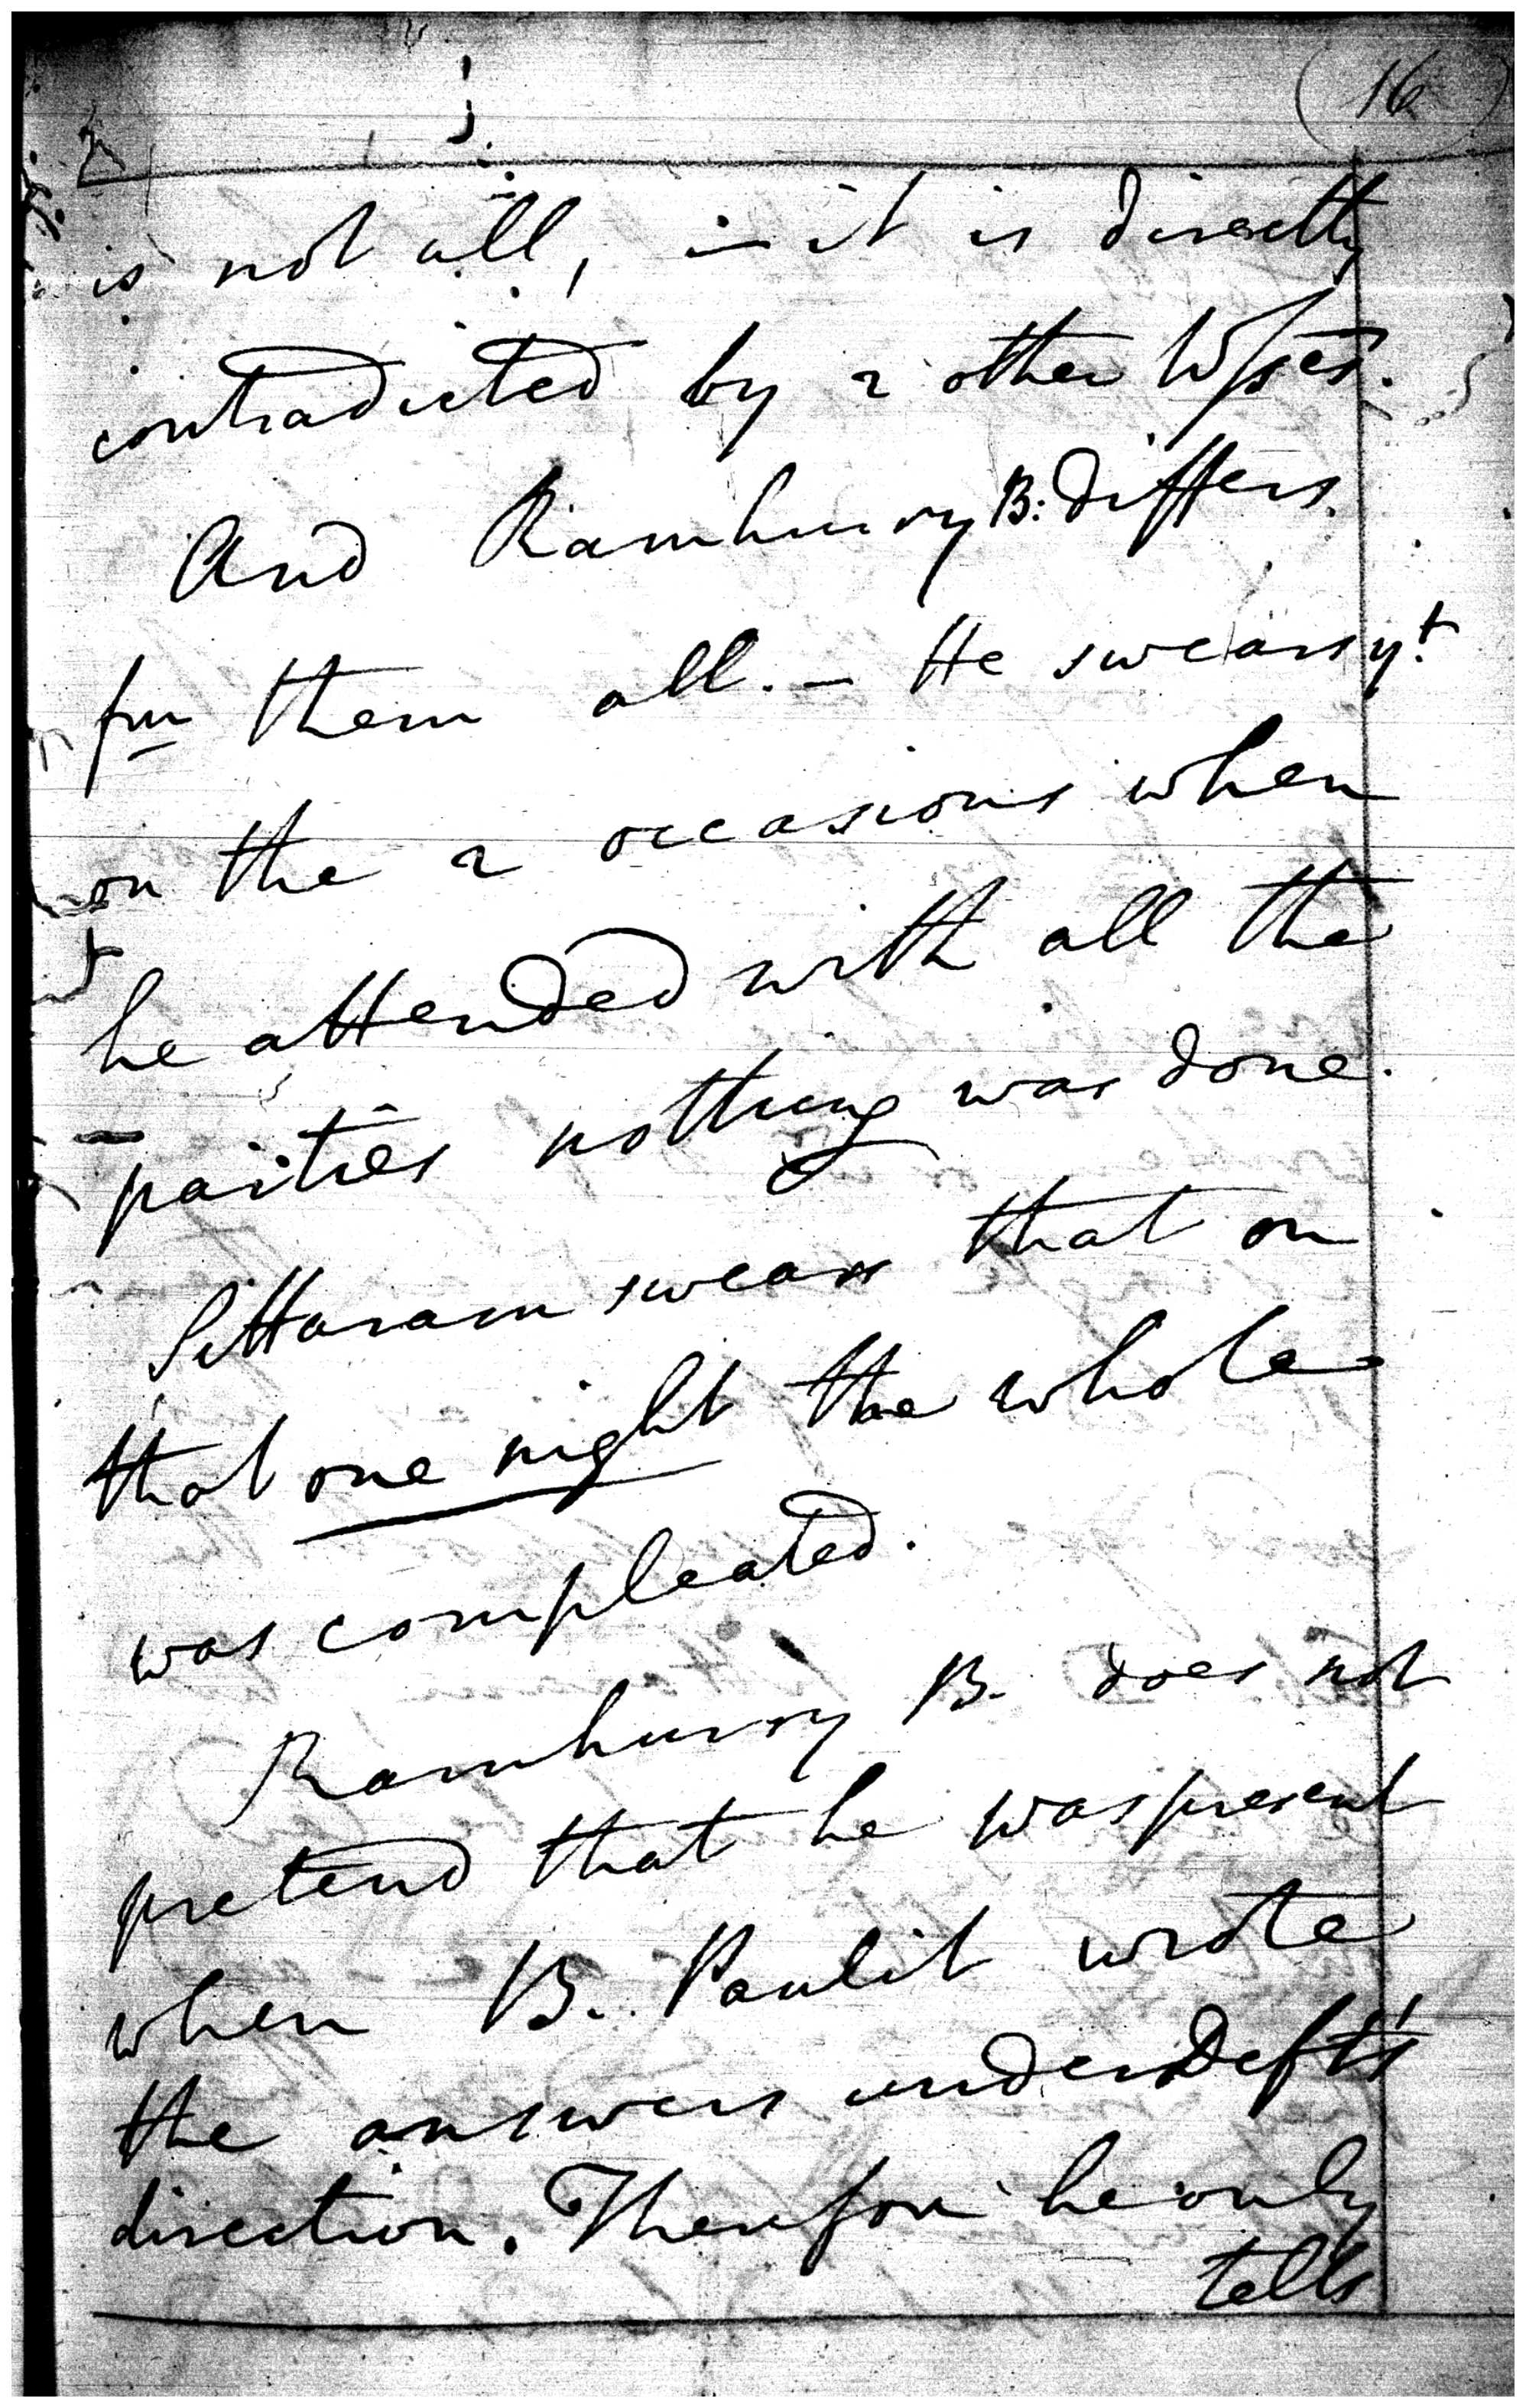 (16)
is not all, — it is directly
contradicted by 2 other Wsses.
And Ramhurry B: differs
fm them all. — He swears yt
on the 2 occasions when
he attended with all the
parties nothing was done.
Sittaram swears that on
that one night the whole
was compleated.
Ramhurry B. does not
pretend that he was present
when B. Paulit wrote
the answers under Deft's
direction. Therefore he only
tells